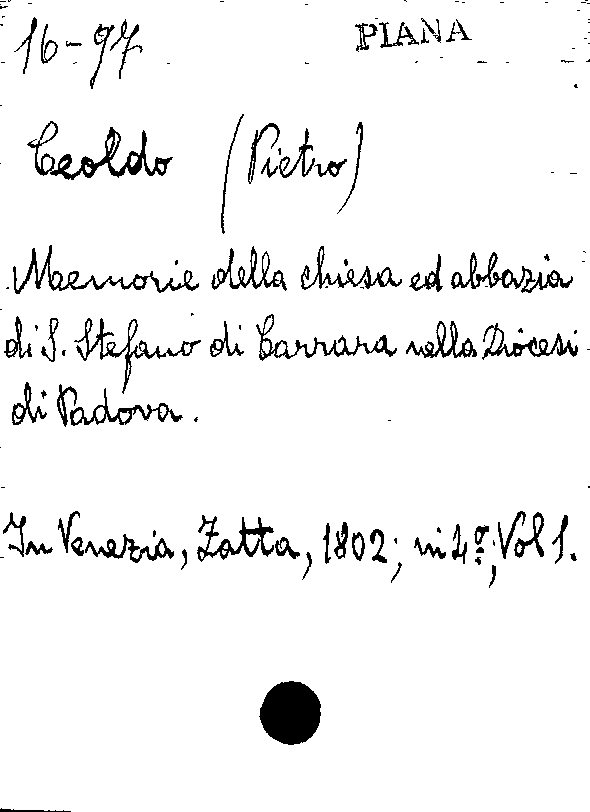 16-97 PIANA
Ceoldo (Pietro)
Memorie della chiesa ed abbazia
di S. Stefano di Carrara nella Diocesi
di Padova.
In Venezia, Zatta, 1802; in 4º; Vol 1.